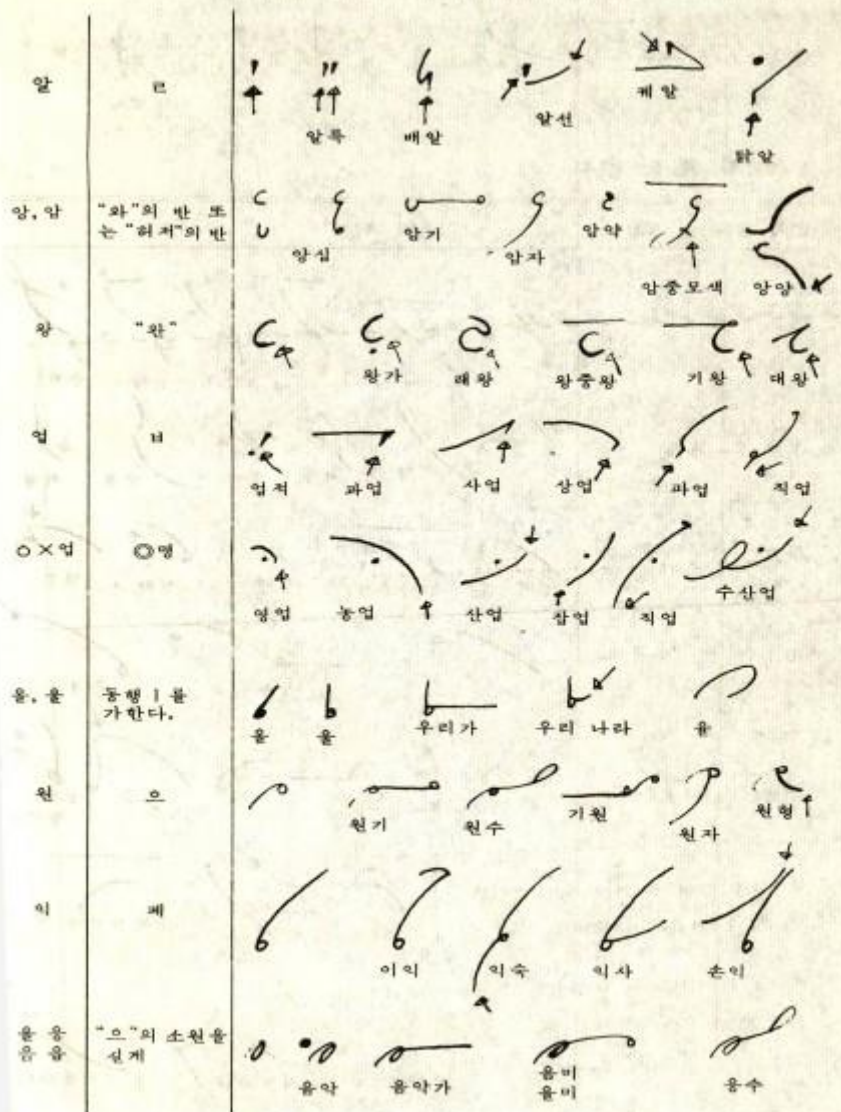 알
ㄹ
알륵 배알 알선 궤알 닭알
앙, 암
"와"의 반 또
는 "허저"의 반
앙심 암기 암자 암약 암중모색 앙앙
왕
"완"
왕가 래왕 왕중왕 기왕 대왕
업
ㅂ
업적 과업 사업 상업 파업 직업
○×업
◎영
영업 농업 산업 잠업 직업 수산업
울, 율
동행 ㅣ를
가한다.
울 율 우리가 우리 나라 율
원
으
원기 원수 기원 원자 원형
익
페
이익 익숙 익사 손익
을 응
음 읍
"으"의 소원을
길게
음악 음악가 음미
을미 응수